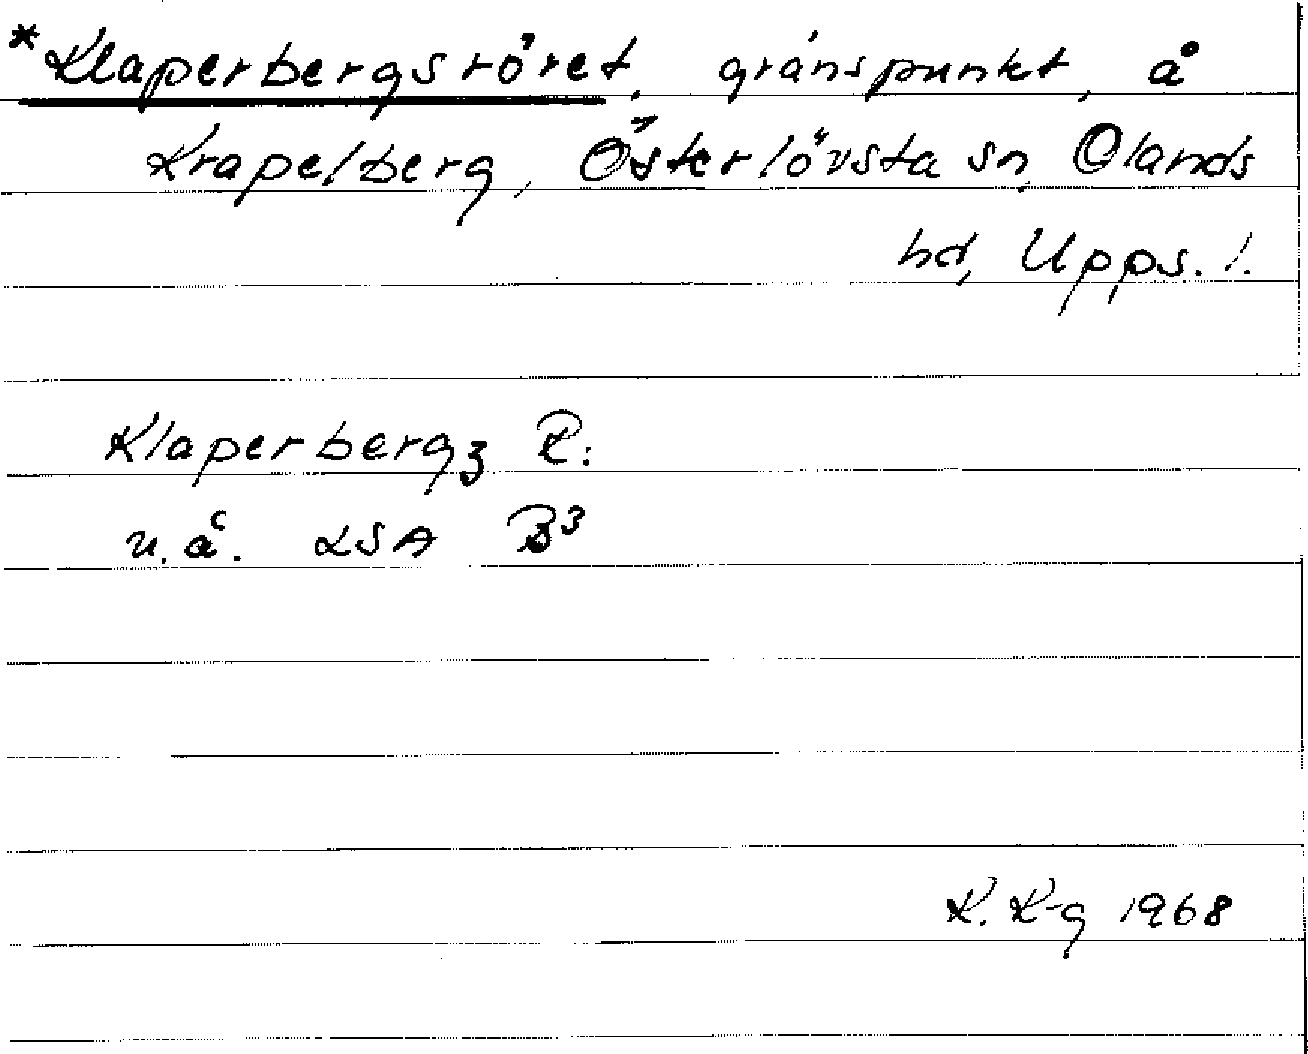 *Klaperbergsröret, gränspunkt, å
Krapelberg, Österlövsta sn, Olands
hd, Upps. l.
Klaperbergz R:
u. å. LSA B³
K. K-g 1968